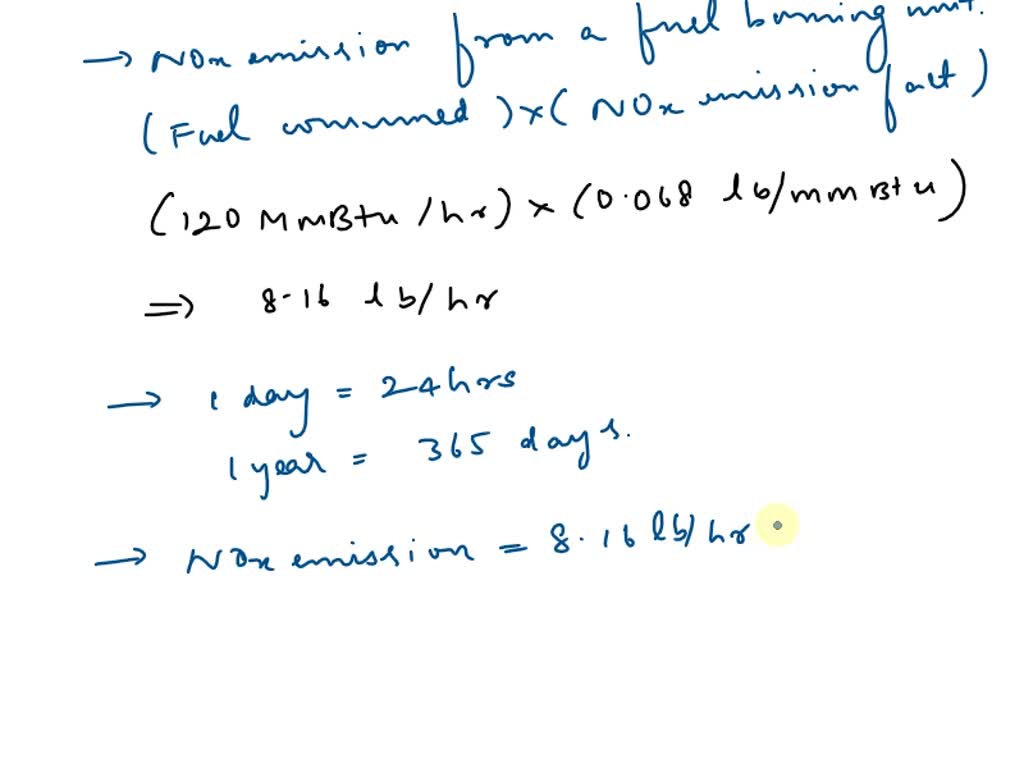 → NOx emission from a fuel burning unit.
(Fuel consumed) × (NOx emission fact)
(120 MmBtu/hr) × (0.068 lb/mmBtu)
⇒ 8.16 lb/hr
→ 1 day = 24hrs
1 year = 365 days.
→ NOx emission = 8.16 lb/hr